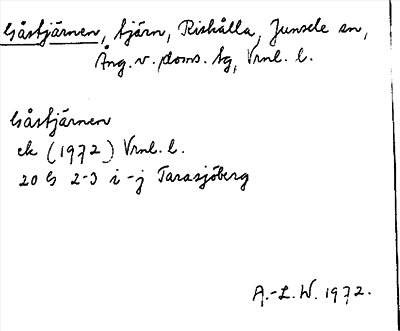 Gåstjärnen, tjärn, Rishålla, Junsele sn,
Ång. v. doms. tg, Vrnl. l.
Gåstjärnen
ek (1972) Vrnl. l.
20 G 2-3 i-j Tarasjöberg
A.-L. W. 1972.